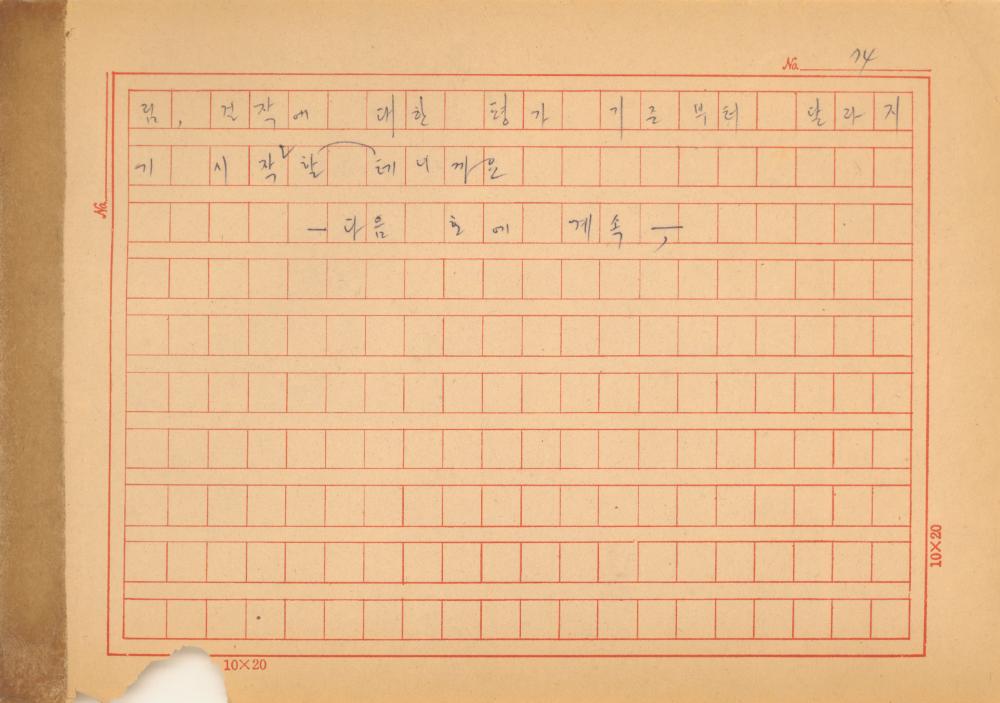 No. 74
림, 걸작에 대한 평가 기준부터 달라지
기 시작할 테니까요
— 다음 호에 계속 —
No.
10×20
10×20